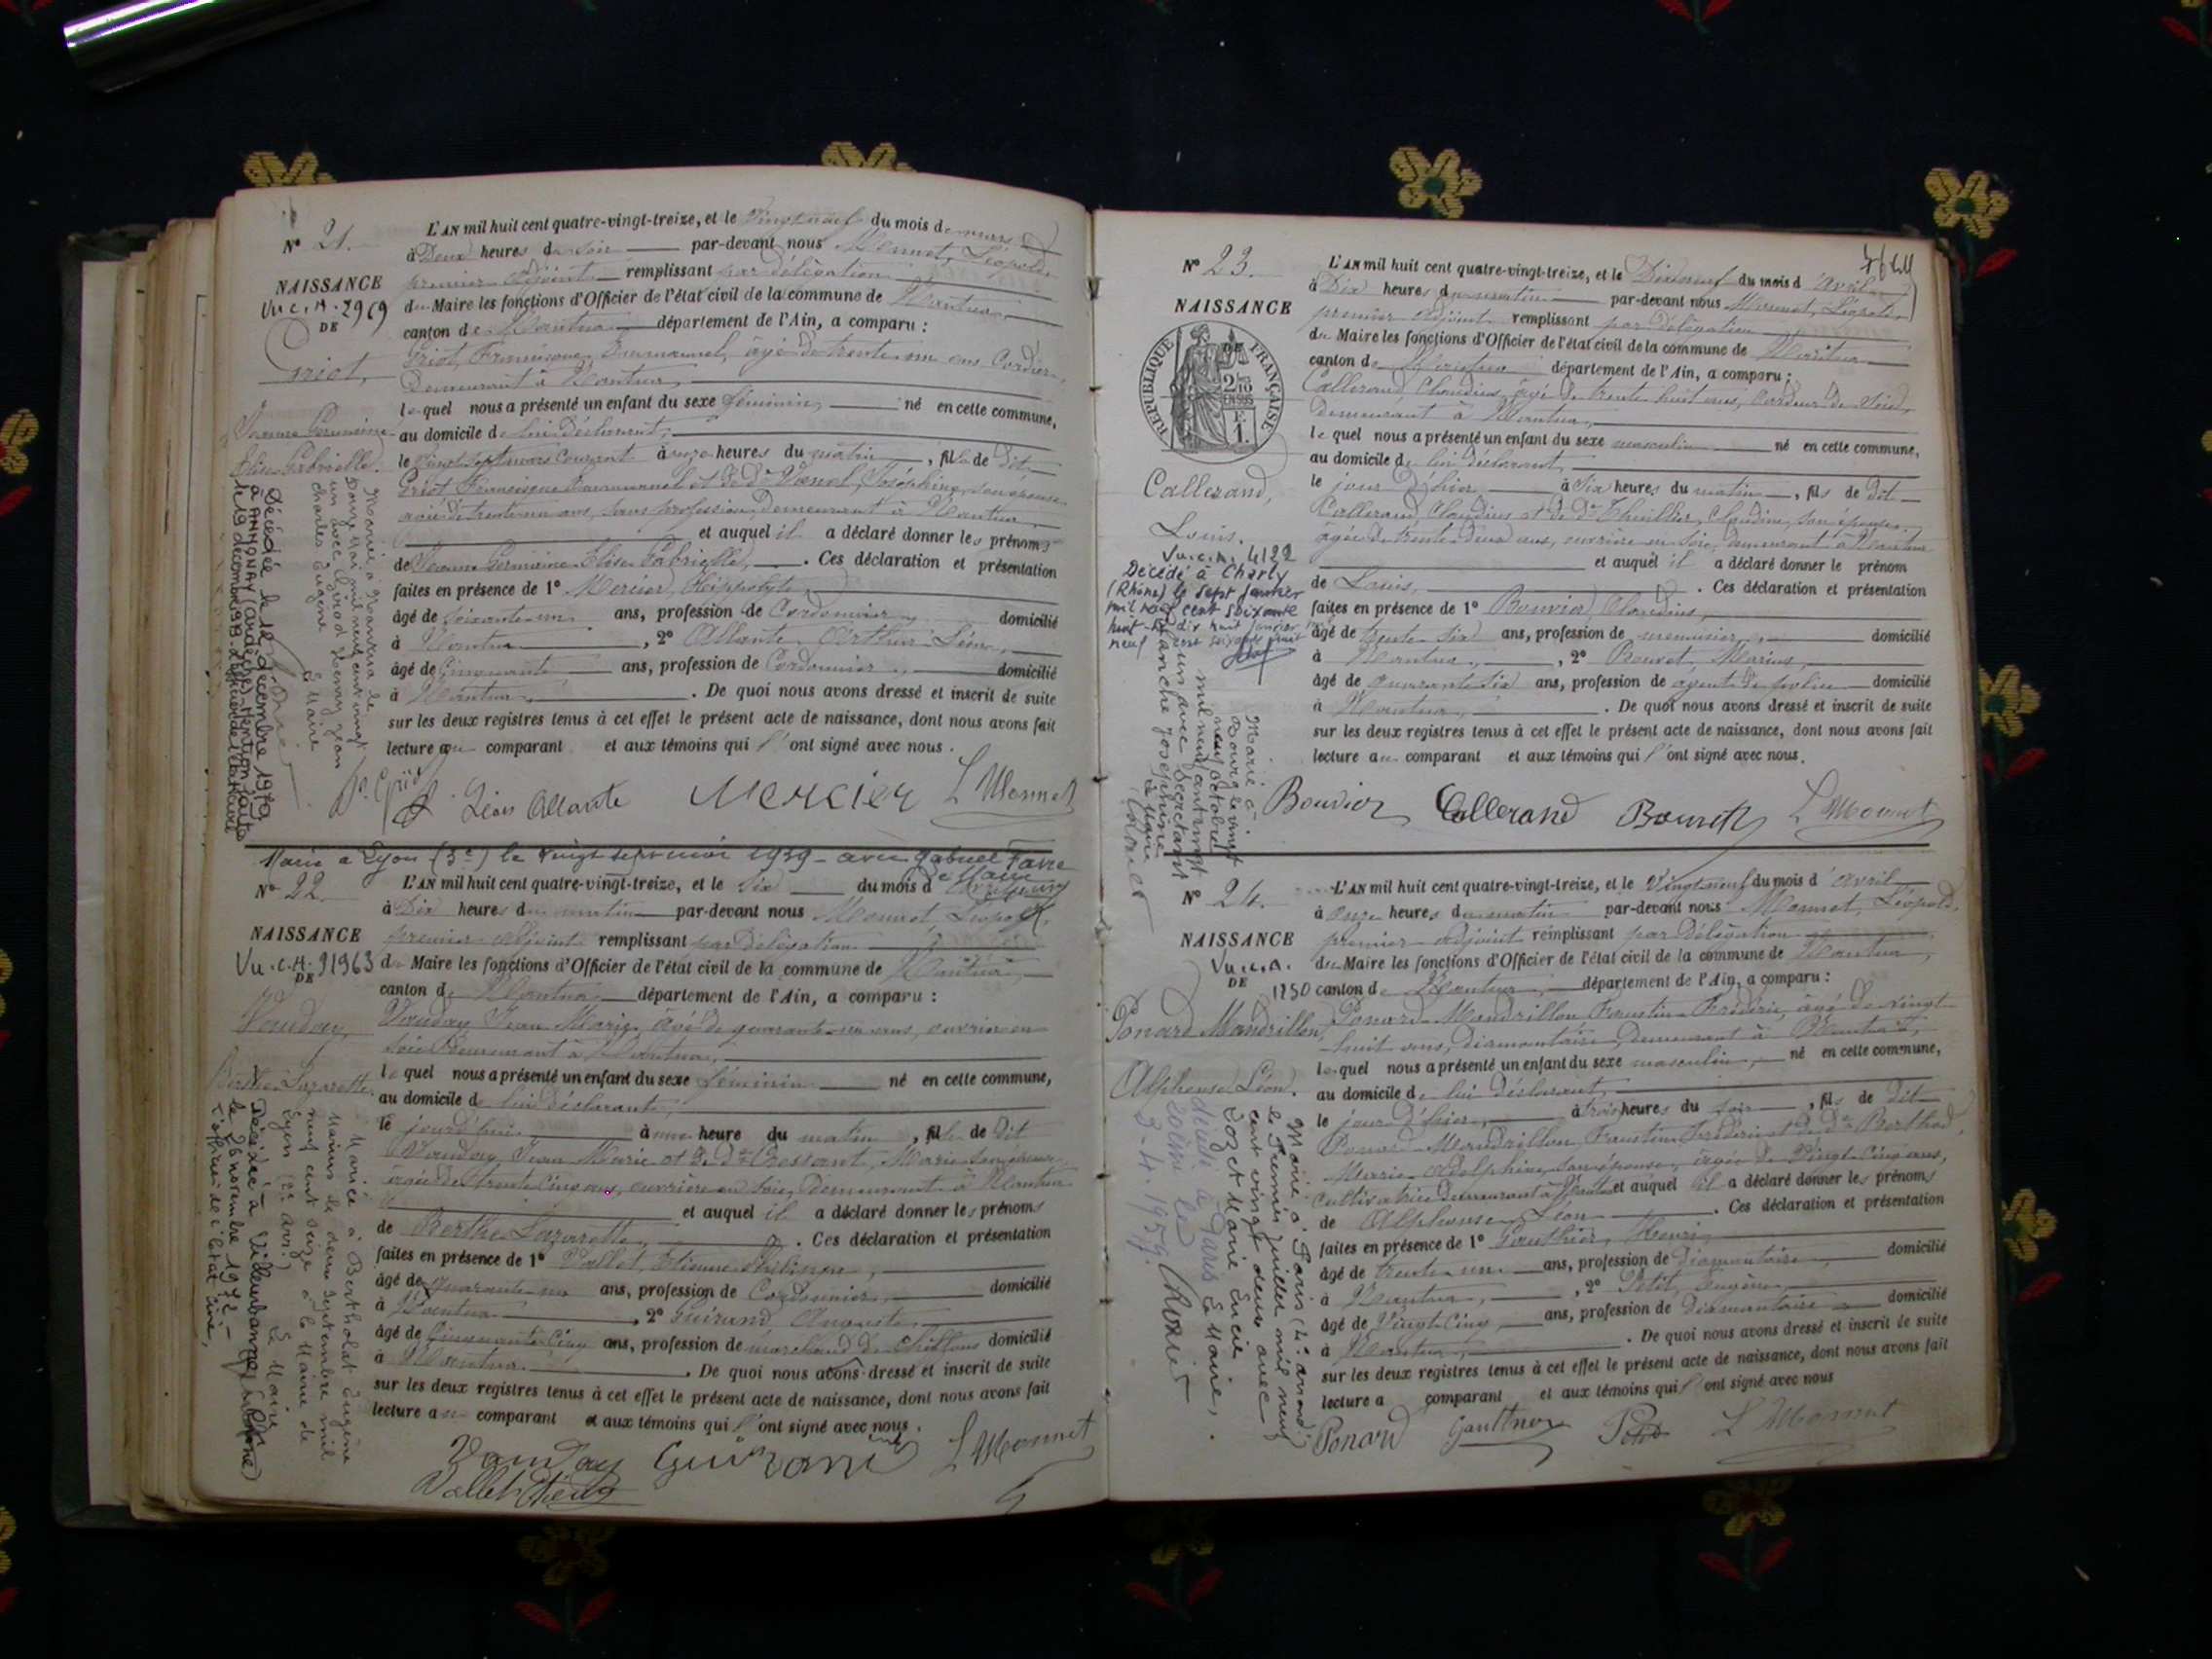 N° 21.
NAISSANCE
Vu c. A. 2969
DE
Griot,
Jeanne Germaine
Elise Gabrielle.
L'AN mil huit cent quatre-vingt-treize, et le Vingt neuf du mois de mars
à Deux heures du soir par-devant nous Monnet, Léopold,
premier adjoint remplissant par délégation
du Maire les fonctions d'Officier de l'état civil de la commune de Nantua
canton de Nantua département de l'Ain, a comparu :
Griot, Francisque Emmanuel, âgé de trente un ans, Cordier,
Demeurant à Nantua,
lequel nous a présenté un enfant du sexe féminin, né en cette commune,
au domicile de lui déclarant,
le vingt sept mars courant à onze heures du matin, fille de dit
Griot Francisque Emmanuel et de De Joséphine, son épouse
âgée de trente un ans, sans profession, demeurant à Nantua
et auquel il a déclaré donner les prénoms
de Jeanne Germaine Elise Gabrielle, . Ces déclaration et présentation
faites en présence de 1° Mercier, Hippolyte,
âgé de soixante un ans, profession de Cordonnier, domicilié
à Nantua, 2° Allante Arthur Léon,
âgé de Cinquante ans, profession de Cordonnier, domicilié
à Nantua, . De quoi nous avons dressé et inscrit de suite
sur les deux registres tenus à cet effet le présent acte de naissance, dont nous avons fait
lecture au comparant et aux témoins qui l'ont signé avec nous.
Léon Allante Mercier L Monnet
Mariée à Nantua le
Douze Mai mil neuf cent vingt
un avec Girod Henry Jean
Charles Eugène
Le Maire
Décédée le 12 décembre 1979
à ANNONAY (Ardèche) Mention faite
le 19 décembre 1979 L'officier de l'état civil
Marié à Lyon (3e) le vingt sept mai 1939 - avec Gabriel Favre
Le Maire
N° 22.
NAISSANCE
Vu. c. A. 91963
DE
Vauday,
Berthe Lazarette.
L'AN mil huit cent quatre-vingt-treize, et le Six du mois d'Avril
à Dix heures du matin par-devant nous Monnet, Léopold,
premier adjoint remplissant par délégation
du Maire les fonctions d'Officier de l'état civil de la commune de Nantua,
canton de Nantua, département de l'Ain, a comparu :
Vauday Jean Marie, âgé de quarante un ans, ouvrier en
soie, demeurant à Nantua,
lequel nous a présenté un enfant du sexe féminin né en cette commune,
au domicile de lui déclarant,
le jourd'hui à une heure du matin, fille de dit
Vauday Jean Marie et de De Cressant, Marie son épouse
âgée de trente cinq ans, ouvrière en soie, demeurant à Nantua
et auquel il a déclaré donner les prénoms
de Berthe Lazarette, . Ces déclaration et présentation
faites en présence de 1° Vallet, Etienne Philippe,
âgé de quarante un ans, profession de Cordonnier, domicilié
à Nantua, 2° Guirand, Auguste,
âgé de Cinquante Cinq ans, profession de marchand de chiffons domicilié
à Nantua. . De quoi nous avons dressé et inscrit de suite
sur les deux registres tenus à cet effet le présent acte de naissance, dont nous avons fait
lecture au comparant et aux témoins qui l'ont signé avec nous.
Vauday Guirand L Monnet
Vallet Etienne
Mariée à Bertholat Eugène
Marius le deux Septembre mil
neuf cent seize à la Mairie de
Lyon (2e arr.) Le Maire
Décédée à Villeurbanne (Rhône)
le 26 novembre 1972. -
L'officier de l'état civil,
N° 23.
NAISSANCE
DE
REPUBLIQUE FRANÇAISE
2/10 EN SUS
F. 1.
Callerand,
Louis.
Vu. c. A. 4122
Décédé à Charly
(Rhône) le sept janvier
mil neuf cent soixante
L'AN mil huit cent quatre-vingt-treize, et le Dixneuf du mois d'Avril
à Dix heures du matin par-devant nous Monnet, Léopold,
premier adjoint remplissant par délégation
du Maire les fonctions d'Officier de l'état civil de la commune de Nantua
canton de Nantua département de l'Ain, a comparu :
Callerand, Claudius, âgé de trente huit ans, cardeur de soie,
demeurant à Nantua,
lequel nous a présenté un enfant du sexe masculin né en cette commune,
au domicile de lui déclarant,
le jour d'hier à Six heures du matin, fils de dit
Callerand Claudius et de De Thuillier, Claudine, son épouse,
âgée de trente deux ans, ouvrière en soie, demeurant à Nantua
et auquel il a déclaré donner le prénom
de Louis, . Ces déclaration et présentation
faites en présence de 1° Bouvier, Claudius,
âgé de trente six ans, profession de menuisier, domicilié
à Nantua, 2° Bouret, Marius,
âgé de quarante six ans, profession de agent de police domicilié
à Nantua, . De quoi nous avons dressé et inscrit de suite
sur les deux registres tenus à cet effet le présent acte de naissance, dont nous avons fait
lecture au comparant et aux témoins qui l'ont signé avec nous.
Bouvier Callerand Bouret L Monnet
Marié à
Bourg le vingt
neuf octobre
mil neuf cent vingt
un avec Secretant
Blanche Joséphine
Le Maire
N° 24.
NAISSANCE
Vu. c. A.
DE 1250
Ponard Mandrillon,
Alphonse Léon.
L'AN mil huit cent quatre-vingt-treize, et le Vingt neuf du mois d'avril
à onze heures du matin par-devant nous Monnet, Léopold,
premier adjoint remplissant par délégation
du Maire les fonctions d'Officier de l'état civil de la commune de Nantua,
canton de Nantua, département de l'Ain, a comparu :
Ponard Mandrillon Faustin Frédéric, âgé de vingt
huit ans, diamantaire, demeurant à Nantua,
lequel nous a présenté un enfant du sexe masculin, né en cette commune,
au domicile de lui déclarant,
le jour d'hier, à trois heures du soir, fils de dit
Ponard Mandrillon Faustin Frédéric et de De Berthod,
Marie Adelphine, son épouse, âgée de vingt cinq ans,
cultivatrice demeurant à Nantua et auquel il a déclaré donner les prénoms
de Alphonse Léon . Ces déclaration et présentation
faites en présence de 1° Gauthier, Henri,
âgé de trente un ans, profession de diamantaire, domicilié
à Nantua, 2° Petit, Eugène,
âgé de Vingt Cinq ans, profession de diamantaire domicilié
à Nantua, . De quoi nous avons dressé et inscrit le suite
sur les deux registres tenus à cet effet le présent acte de naissance, dont nous avons fait
lecture a comparant et aux témoins qui l'ont signé avec nous
Ponard Gauthier Petit L Monnet
Marié à Paris (4e arrond.)
le Premier juillet mil neuf
cent vingt deux avec
Marie Lucie
Le Maire,
décédé à Paris
3-4-1959.